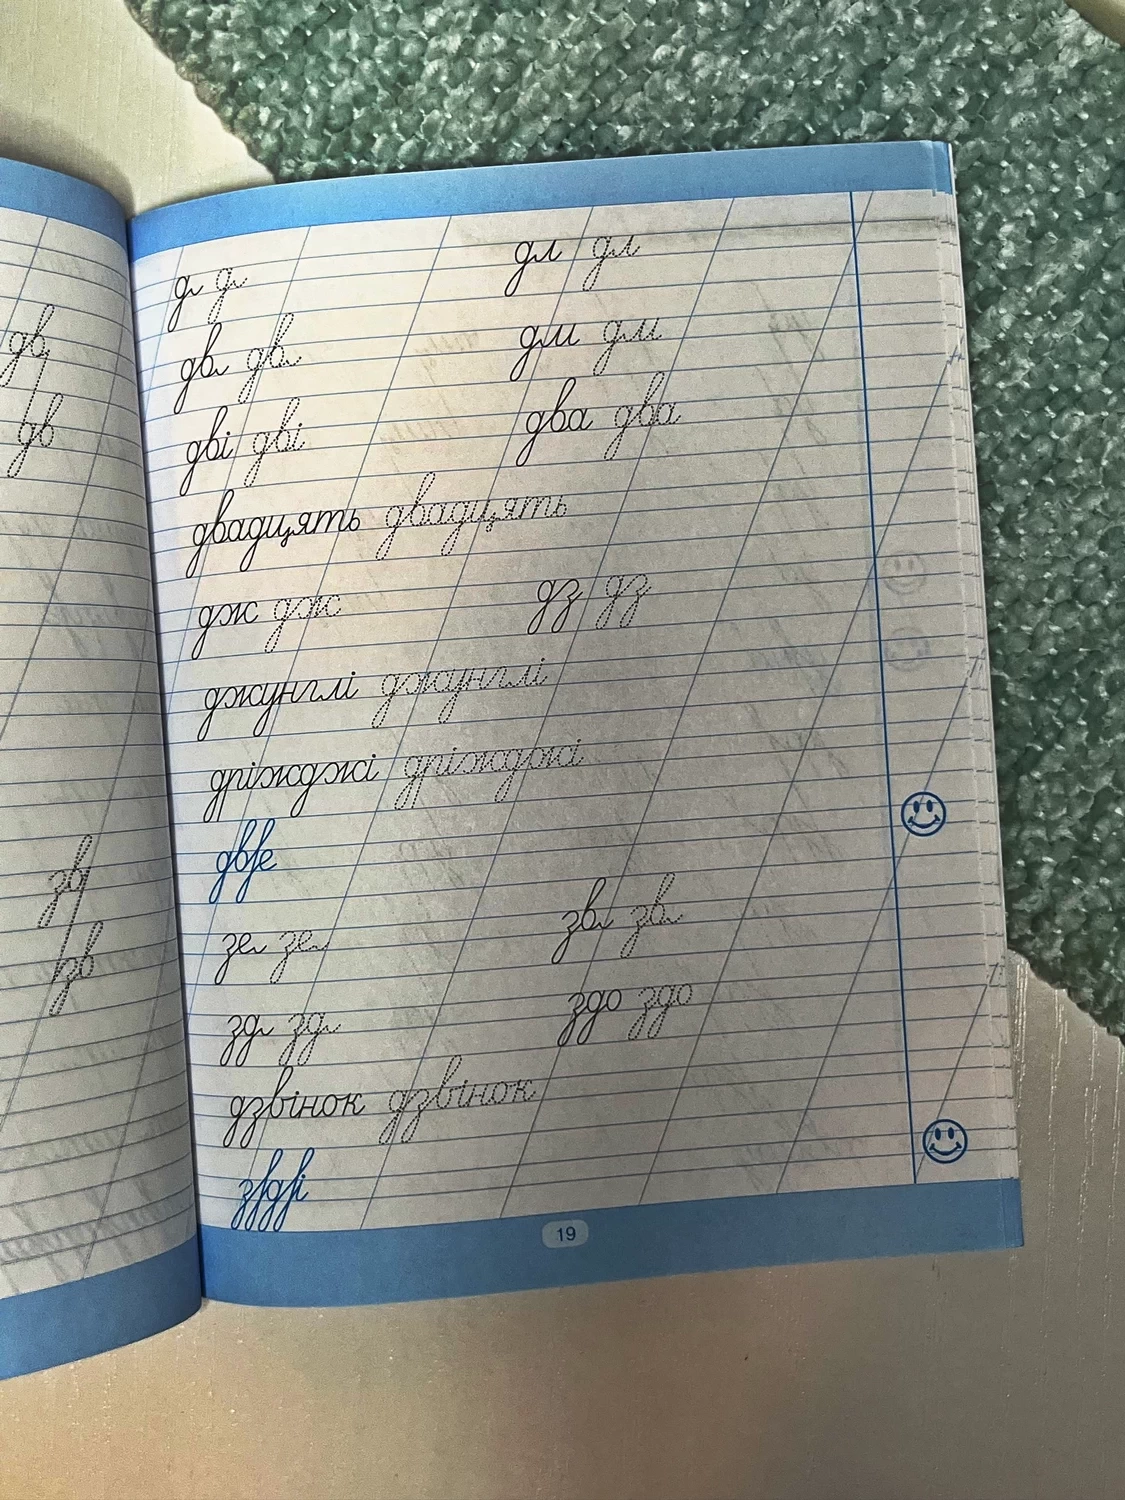 дв
дв
зв
зв
д д дл дл
дв дв дм дм
дві дві два два
двадцять двадцять
дж дж дз дз
джунглі джунглі
дріжджі дріжджі
зе зе зв зв
зд зд здо здо
дзвінок дзвінок
19